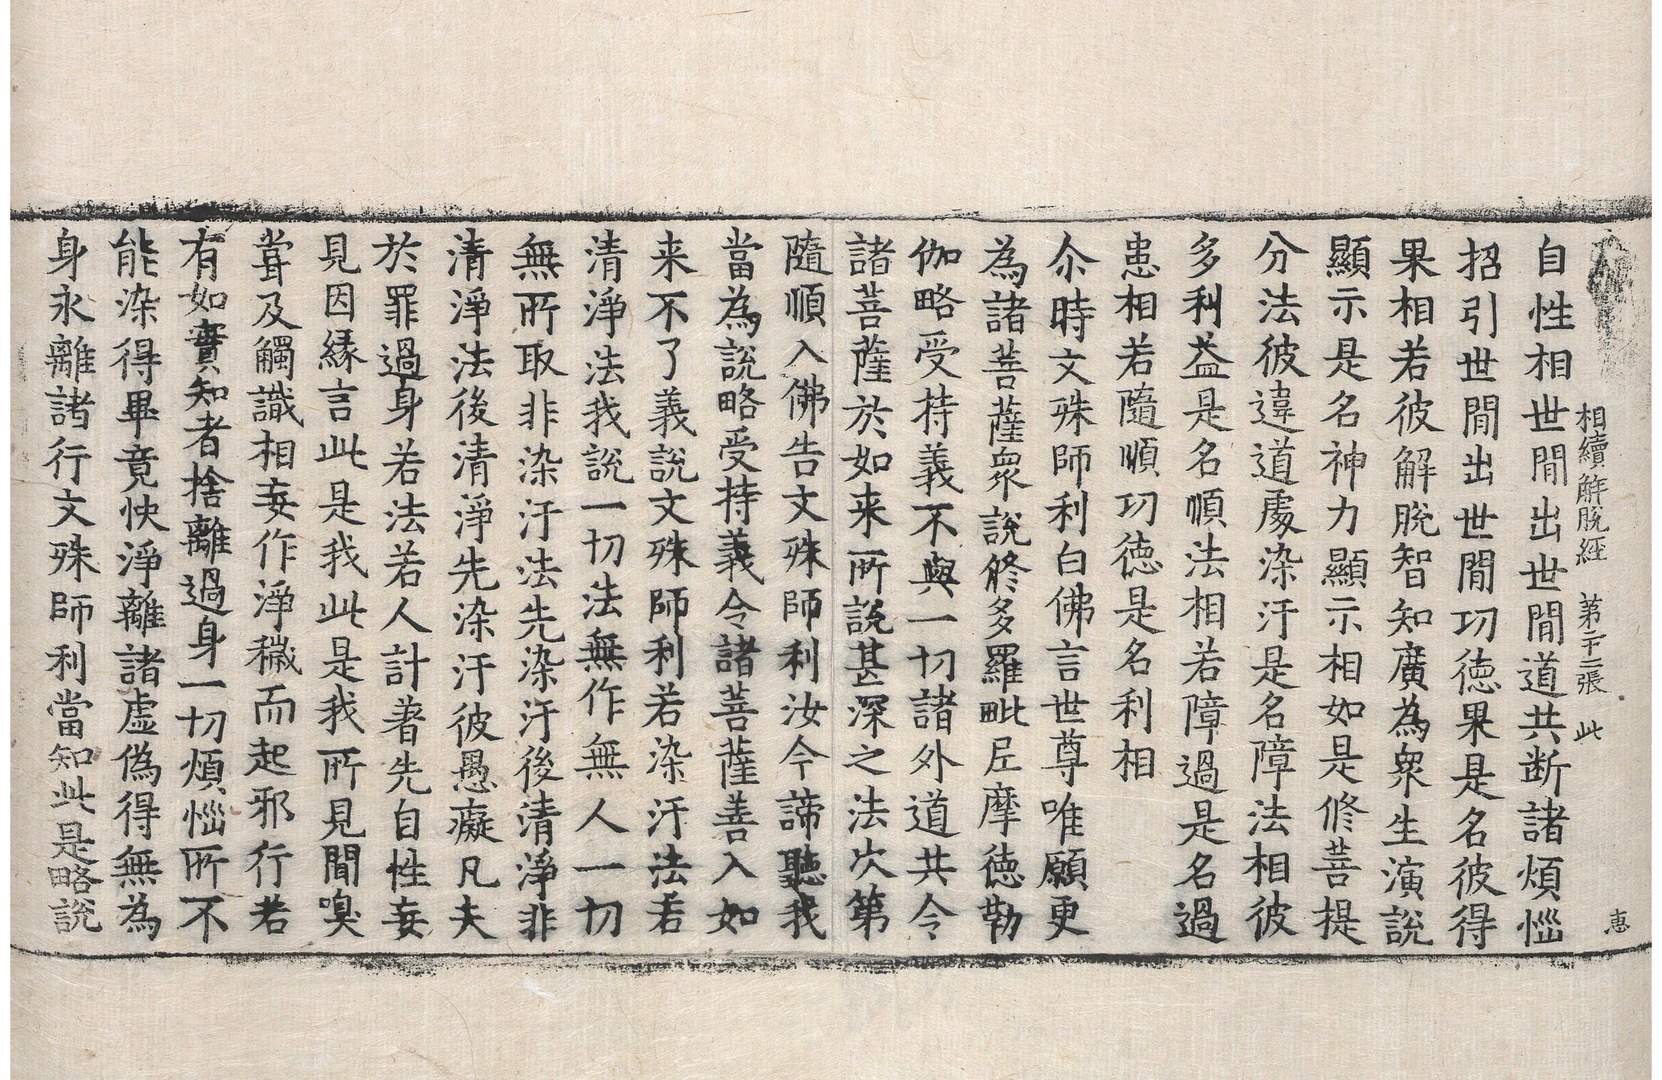 相續解脫經 第二十二張 此
惠
自性相世間出世間道共断諸煩惱
招引世間出世間功徳果是名彼得
果相若彼解脫智知廣為衆生演說
顯示是名神力顯示相如是修菩提
分法彼違道處染汙是名障法相彼
多利益是名順法相若障過是名過
患相若隨順功徳是名利相
尒時文殊師利白佛言世尊唯願更
為諸菩薩衆說修多羅毗尼摩徳勒
伽略受持義不與一切諸外道共令
諸菩薩於如来所說甚深之法次第
隨順入佛告文殊師利汝今諦聽我
當為說略受持義令諸菩薩善入如
来不了義說文殊師利若染汙法若
清淨法我說一切法無作無人一切
無所取非染汙法先染汙後清淨非
清淨法後清淨先染汙彼愚癡凡夫
於罪過身若法若人計著先自性妄
見因縁言此是我此是我所見聞嗅
甞及觸識相妄作淨穢而起邪行若
有如實知者捨離過身一切煩惱所不
能染得畢竟快淨離諸虛偽得無為
身永離諸行文殊師利當知此是略說